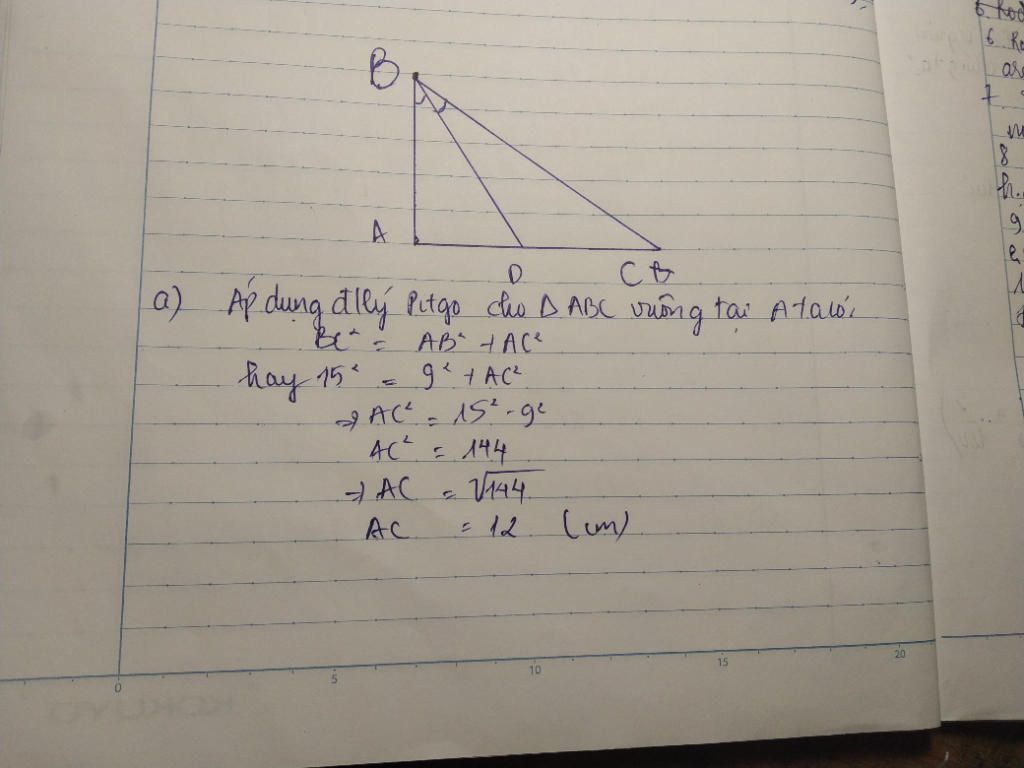 B
A
D
C
a) Áp dụng đllý Pitgo cho Δ ABC vuông tại A ta có,
BC² = AB² + AC²
hay 15² = 9² + AC²
⇒ AC² = 15² - 9²
AC² = 144
⇒ AC = √144
AC = 12 (cm)
0 5 10 15 20
6
7
8
9